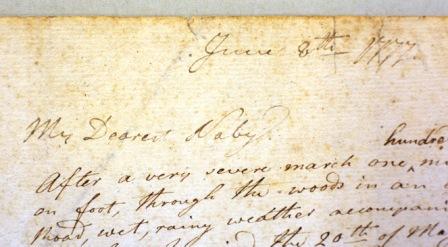 June 8th 1777.
My Dearest Naby
hundred
After a very severe march one
on foot, through the woods in an
Road, wet, rainy weather accompani
the 20th of